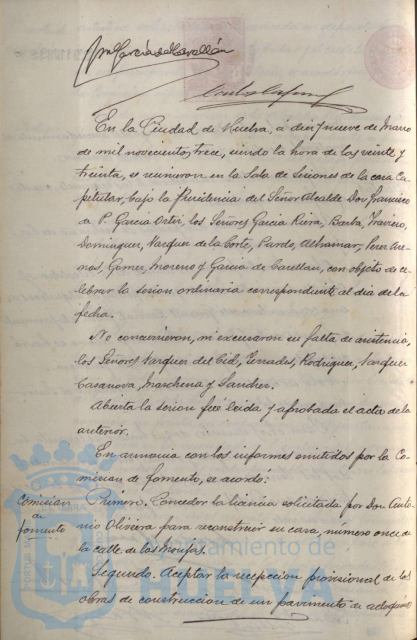 Jn García de Cavellán
En la Ciudad de Huelva, á diez y nueve de Marzo
de mil novecientos trece, siendo la hora de las veinte y
treinta, se reunieron en la Sala de Sesiones de la casa Ca-
pitular, bajo la Presidencia del Señor Alcalde Don Francisco
de P. García Ortiz, los Señores García Riera, Barba, Travieso,
Dominguez, Vazquez de la Corte, Pardo, Alhainar, Perez Are-
nas, Gomez Moreno y García de Carellan, con objeto de ce-
lebrar la sesion ordinaria correspondiente al dia de la
fecha.
No concurrieron, ni excusaron su falta de asistencia,
los Señores Vazquez del Cid, Terrades, Rodriguez, Vazquez
Casanova, Marchena y Sanchez.
Abierta la sesion fué leida y aprobada el acta de la
anterior.
En armonia con los informes emitidos por la Co-
mision de fomento, se acordó:
Comision
de
fomento
Primero. Conceder la licencia solicitada por Don Anto-
nio Oliviera para reconstruir su casa, número once de
la calle de las Monjas.
Segundo. Aceptar la recepcion provisional de las
obras de construccion de un pavimento de adoquines
Ayuntamiento de
HUELVA